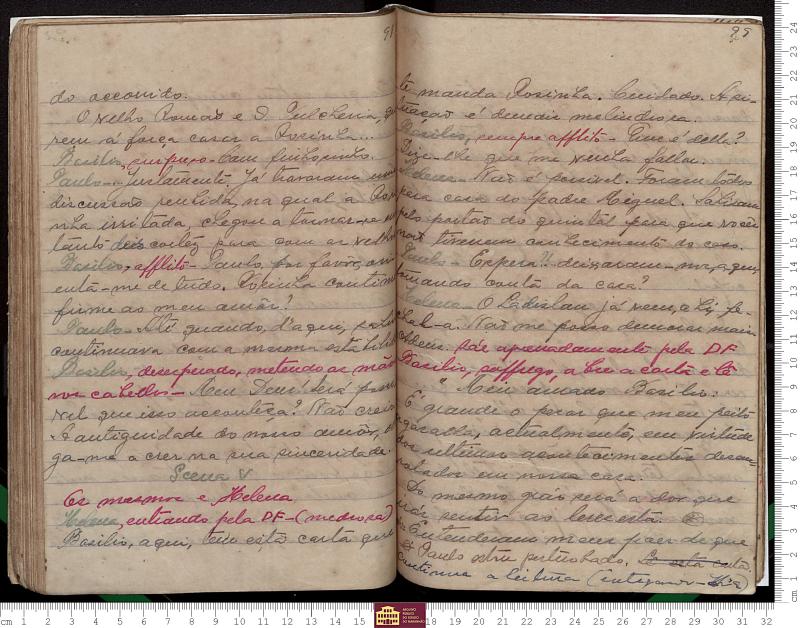 91
do occorrido.
O velho Romão e D. Pulcheria, que-
rem á força casar a Rosinha...
Basilio, surpreso - Com
Paulo - Justamente. Já travaram uma
discussão renhida, na qual a Rosi-
nha irritada, chegou a tornar-se um
tanto descortez para com os velhos
Basilio, afflito - Paulo, por favôr, con
enta-me de tudo. Rosinha continúa
firme ao meu amôr?
Paulo - Até quando, d'aqui, sahi
continuava com a mesma estabili
Basilio, desesperado, mettendo as mãos
nos cabellos - Meu Deus! será possi
vel que isso aconteça? Não creio
A antiguidade do nosso amôr, o
ga-me a crer na sua sinceridade.
Scena V
Os mesmos e Helena
Helena, entrando pela DF - (medrosa)
Basilio, aqui, tem esta carta que
95
te manda Rosinha. Cuidado. A si-
tuação é demais melindrosa.
Basilio, sempre afflito - Que é della?
Dize-lhe que me venha fallar.
Helena - Não é possivel. Foram todos
para casa do padre Miguel. Sahiram
pelo portão do quintal para que vocês
não tivessem conhecimento do caso.
Paulo - Espera!! deixaram-na, aqui,
tomando conta da casa?
Helena - O Ladislau já vem, ahi fe-
chal-a. Não me posso demorar mais
Adeus. Sáe apressadamente pela DF
Basilio, soffrego, abre a carta e lê
" Meu amado Basilio:
É grande o pezar que meu peito
agasalha, actualmente, em virtude
dos ultimos acontecimentos desen-
rolados em nossa casa.
Do mesmo grão será a dor que
irás sentir ao leres esta.
Entenderam meus paes de que
Paulo perturbado. Lê esta carta
continua a leitura